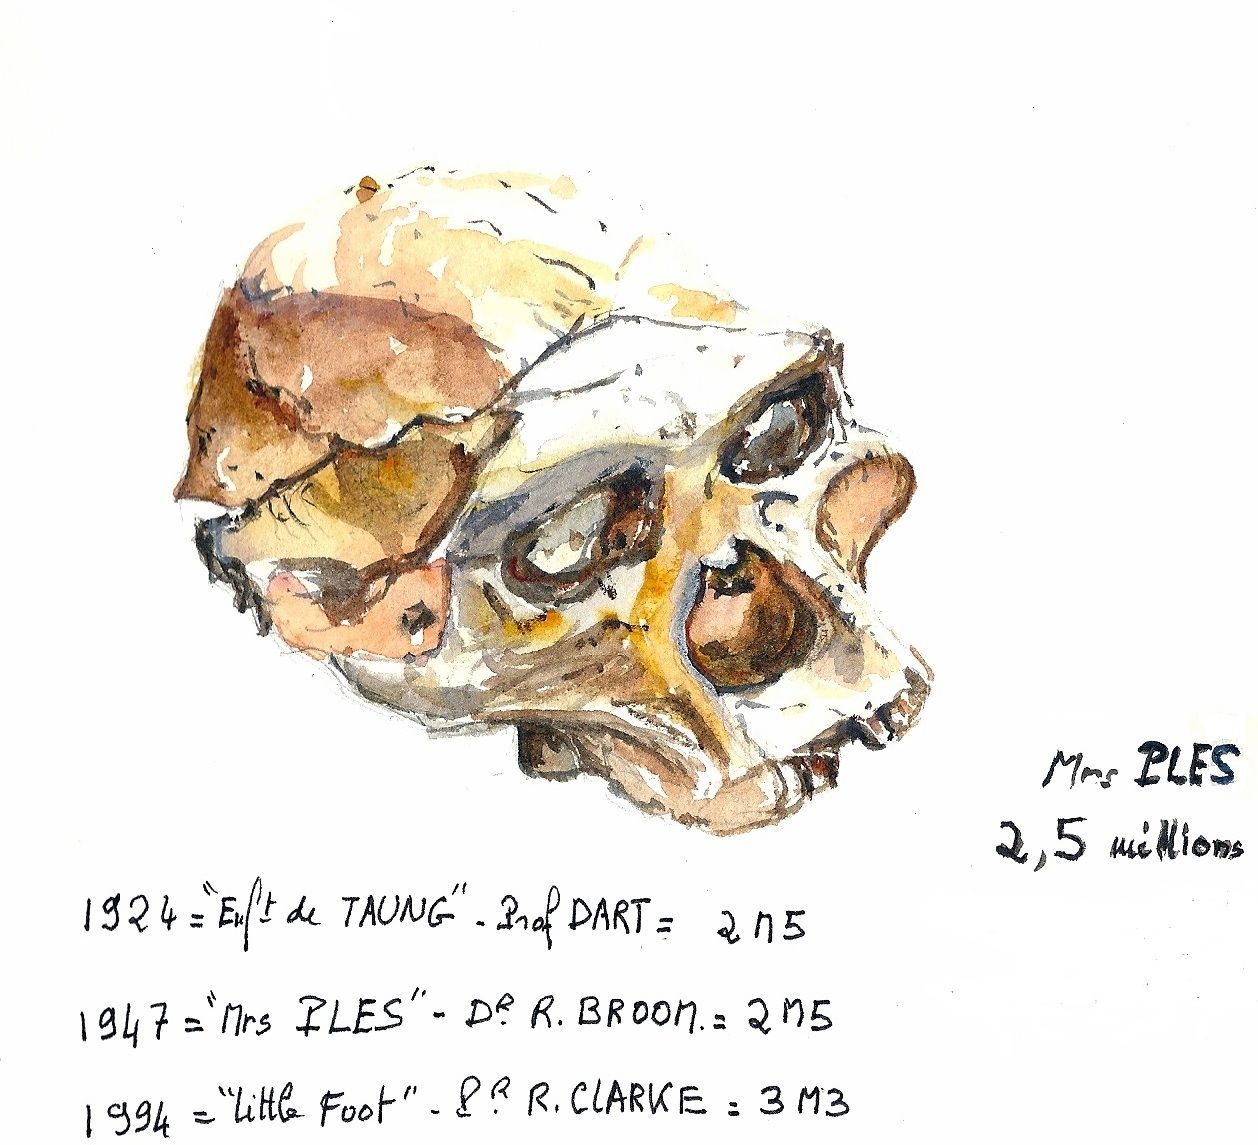 Mrs PLES
2,5 millions
1924 = "Enft de TAUNG" - Prof DART = 2M5
1947 = "Mrs PLES" - DR. R. BROOM. = 2M5
1994 = "Little Foot" - R. CLARKE = 3M3